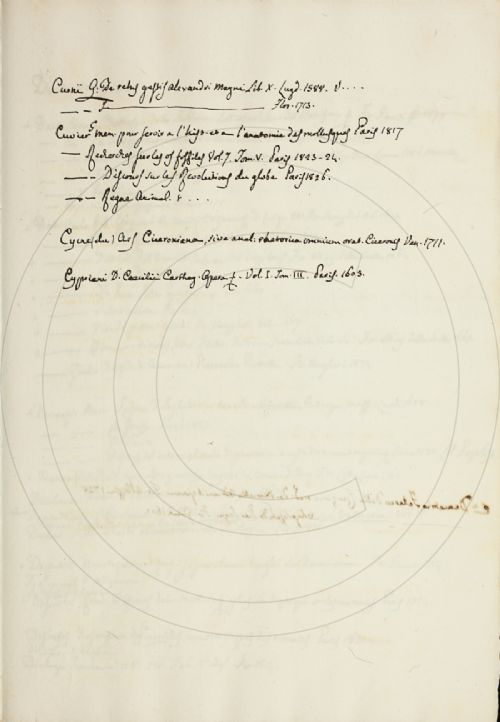 Curtii Q. De rebus gestis Alexandri Magni Lib. X. Lugd. 1588. 8 ....
— — Flor. 1713.
Cuvier G. mem. pour servir a l'hist. et a l'anatomie des mollusques Paris 1817
— Recherches sur les os fossiles Vol. 7. Tom. V. Paris 1823-24.
— — Discours sur les Revolutions du globe Paris 1826.
— — Regne Animal. ....
Cycne (du) Ars Ciceroniana, sive anal. rhetorica omnium orat. Ciceronis Ven. 1711.
Cypriani D. Caecilii Carthag. Opera f. Vol. I. Tom. III. Paris. 1603.